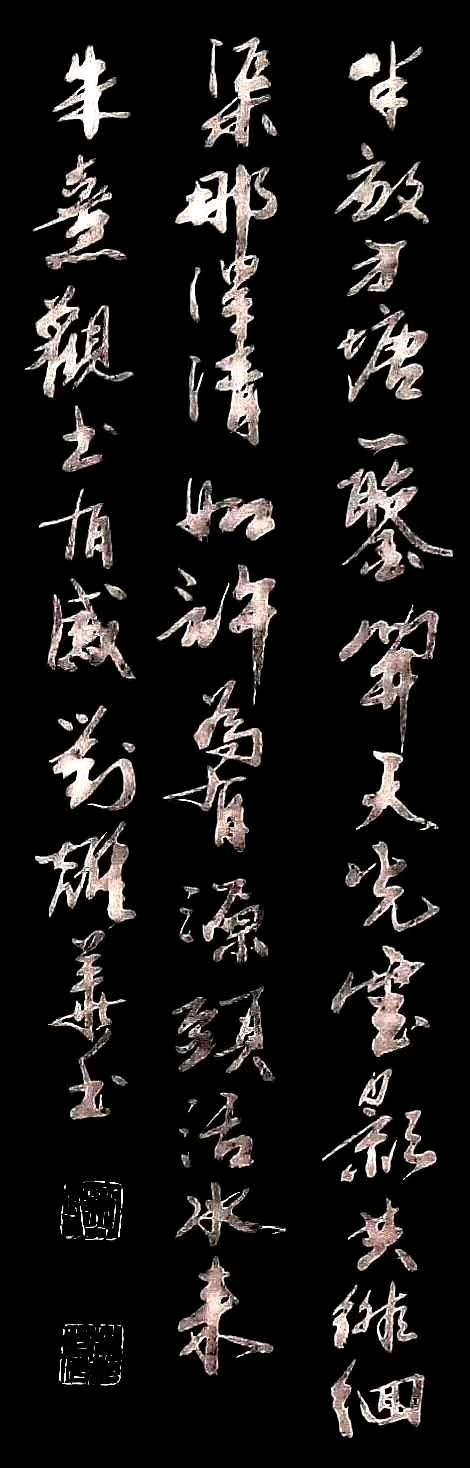 半畝方塘一鑒開天光雲影共徘徊
渠那得清如許為有源頭活水來
朱熹觀书有感劉雄華书